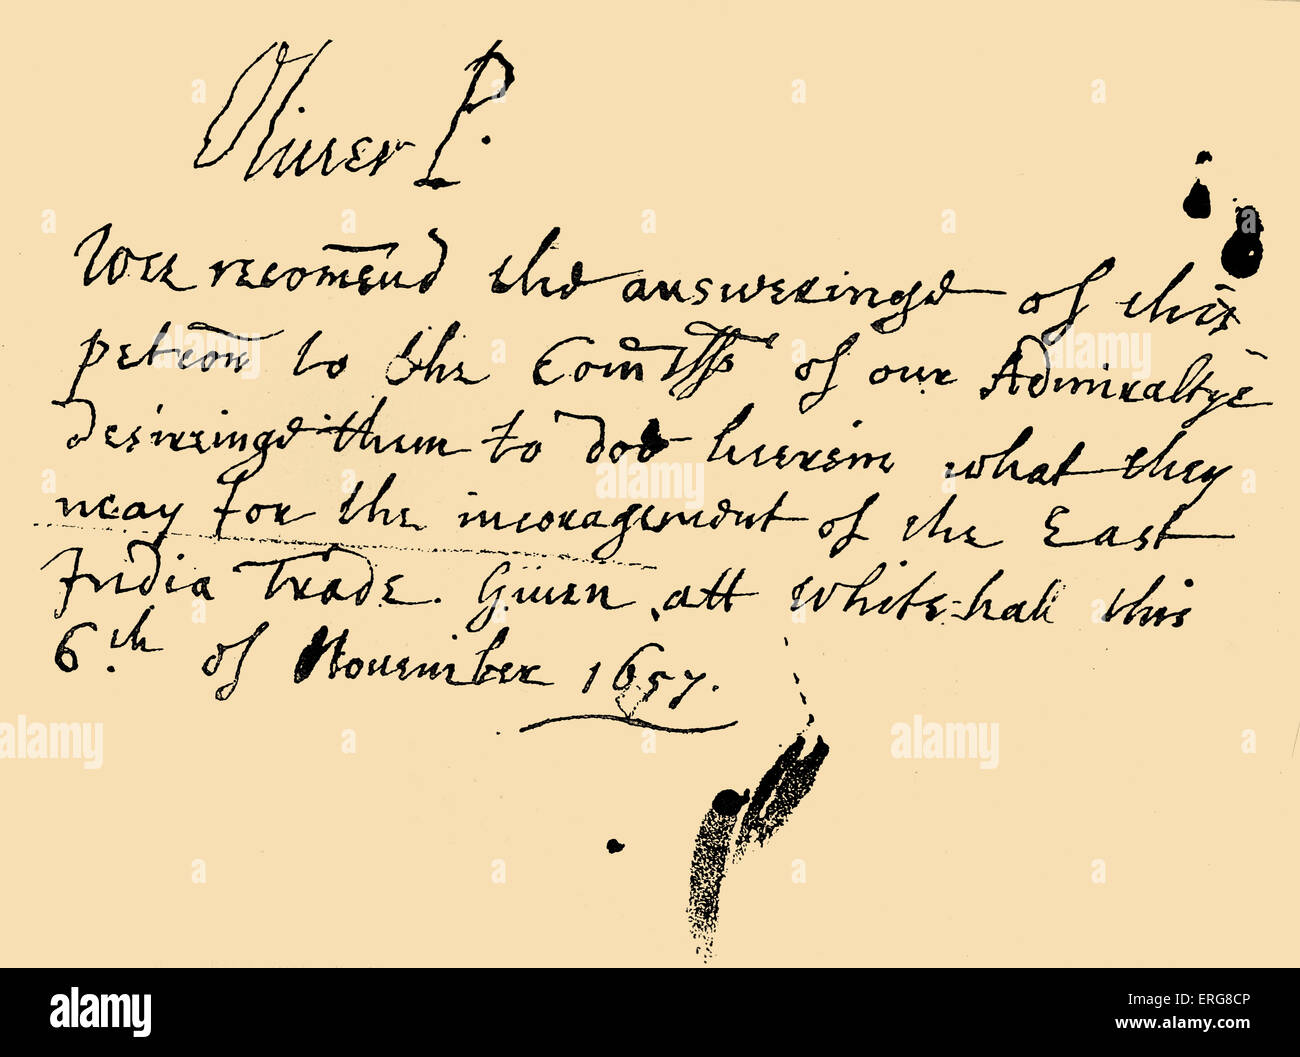 Oliver P.
Wee recom̄end the answeringe of this
petic̄on to the Com̄rs of our Admiraltye
desireinge them to doe heerein what they
may for the incoragement of the East
India Trade. Giuen att White-hall this
6th. of November 1657.
alamy
Image ID: ERG8CP
www.alamy.com